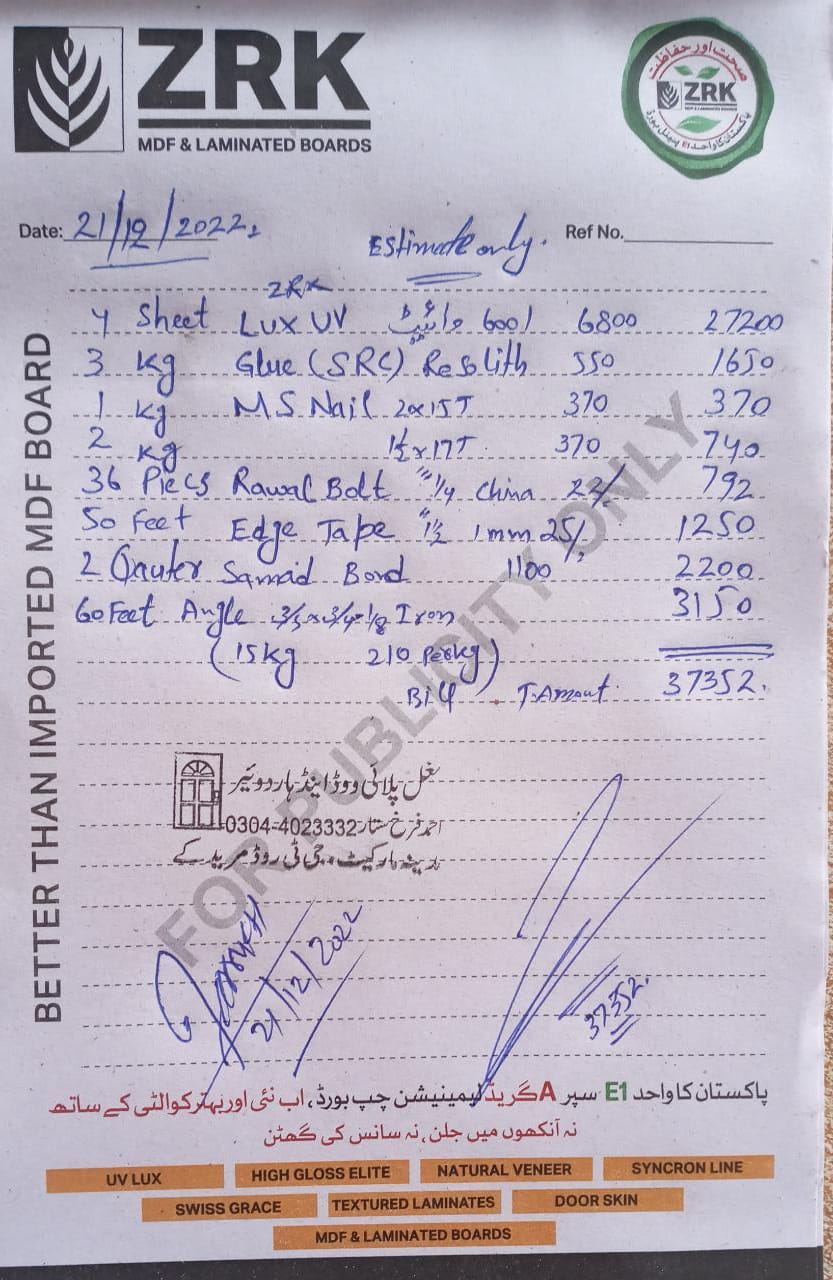 ZRK
MDF & LAMINATED BOARDS
صحت اور حفاظت
ZRK
MDF & LAMINATED BOARDS
پاکستان کا واحد E1 پینل بورڈ
Date: 21/12/2022
Estimate only.
Ref No.
ZRK
4 Sheet Lux UV وائیٹ 6001 6800 27200
3 kg Glue (SRC) Resolith 550 1650
1 kg MS Nail 2x15T 370 370
2 kg 1½x17T 370 740
36 Piecs Rawal Bolt "1/4 China 22/ 792
50 Feet Edge Tape "1½ 1mm 25/ 1250
2 Qauter Samad Bond 1100 2200
60 Feet Angle Iron 3150
(15kg 210 Perkg)
Bill T.Amout 37352.
BETTER THAN IMPORTED MDF BOARD
FOR PUBLICITY ONLY
مغل پلائی ووڈ اینڈ ہارڈوئیر
احمد فرخ ستار 0304-4023332
مدینہ مارکیٹ، جی ٹی روڈ مریدکے
21/12/2022
37352.
پاکستان کا واحد E1 سپر A گریڈ لیمینیشن چپ بورڈ، اب نئی اور بہتر کوالٹی کے ساتھ
نہ آنکھوں میں جلن، نہ سانس کی گھٹن
UV LUX HIGH GLOSS ELITE NATURAL VENEER SYNCRON LINE
SWISS GRACE TEXTURED LAMINATES DOOR SKIN
MDF & LAMINATED BOARDS